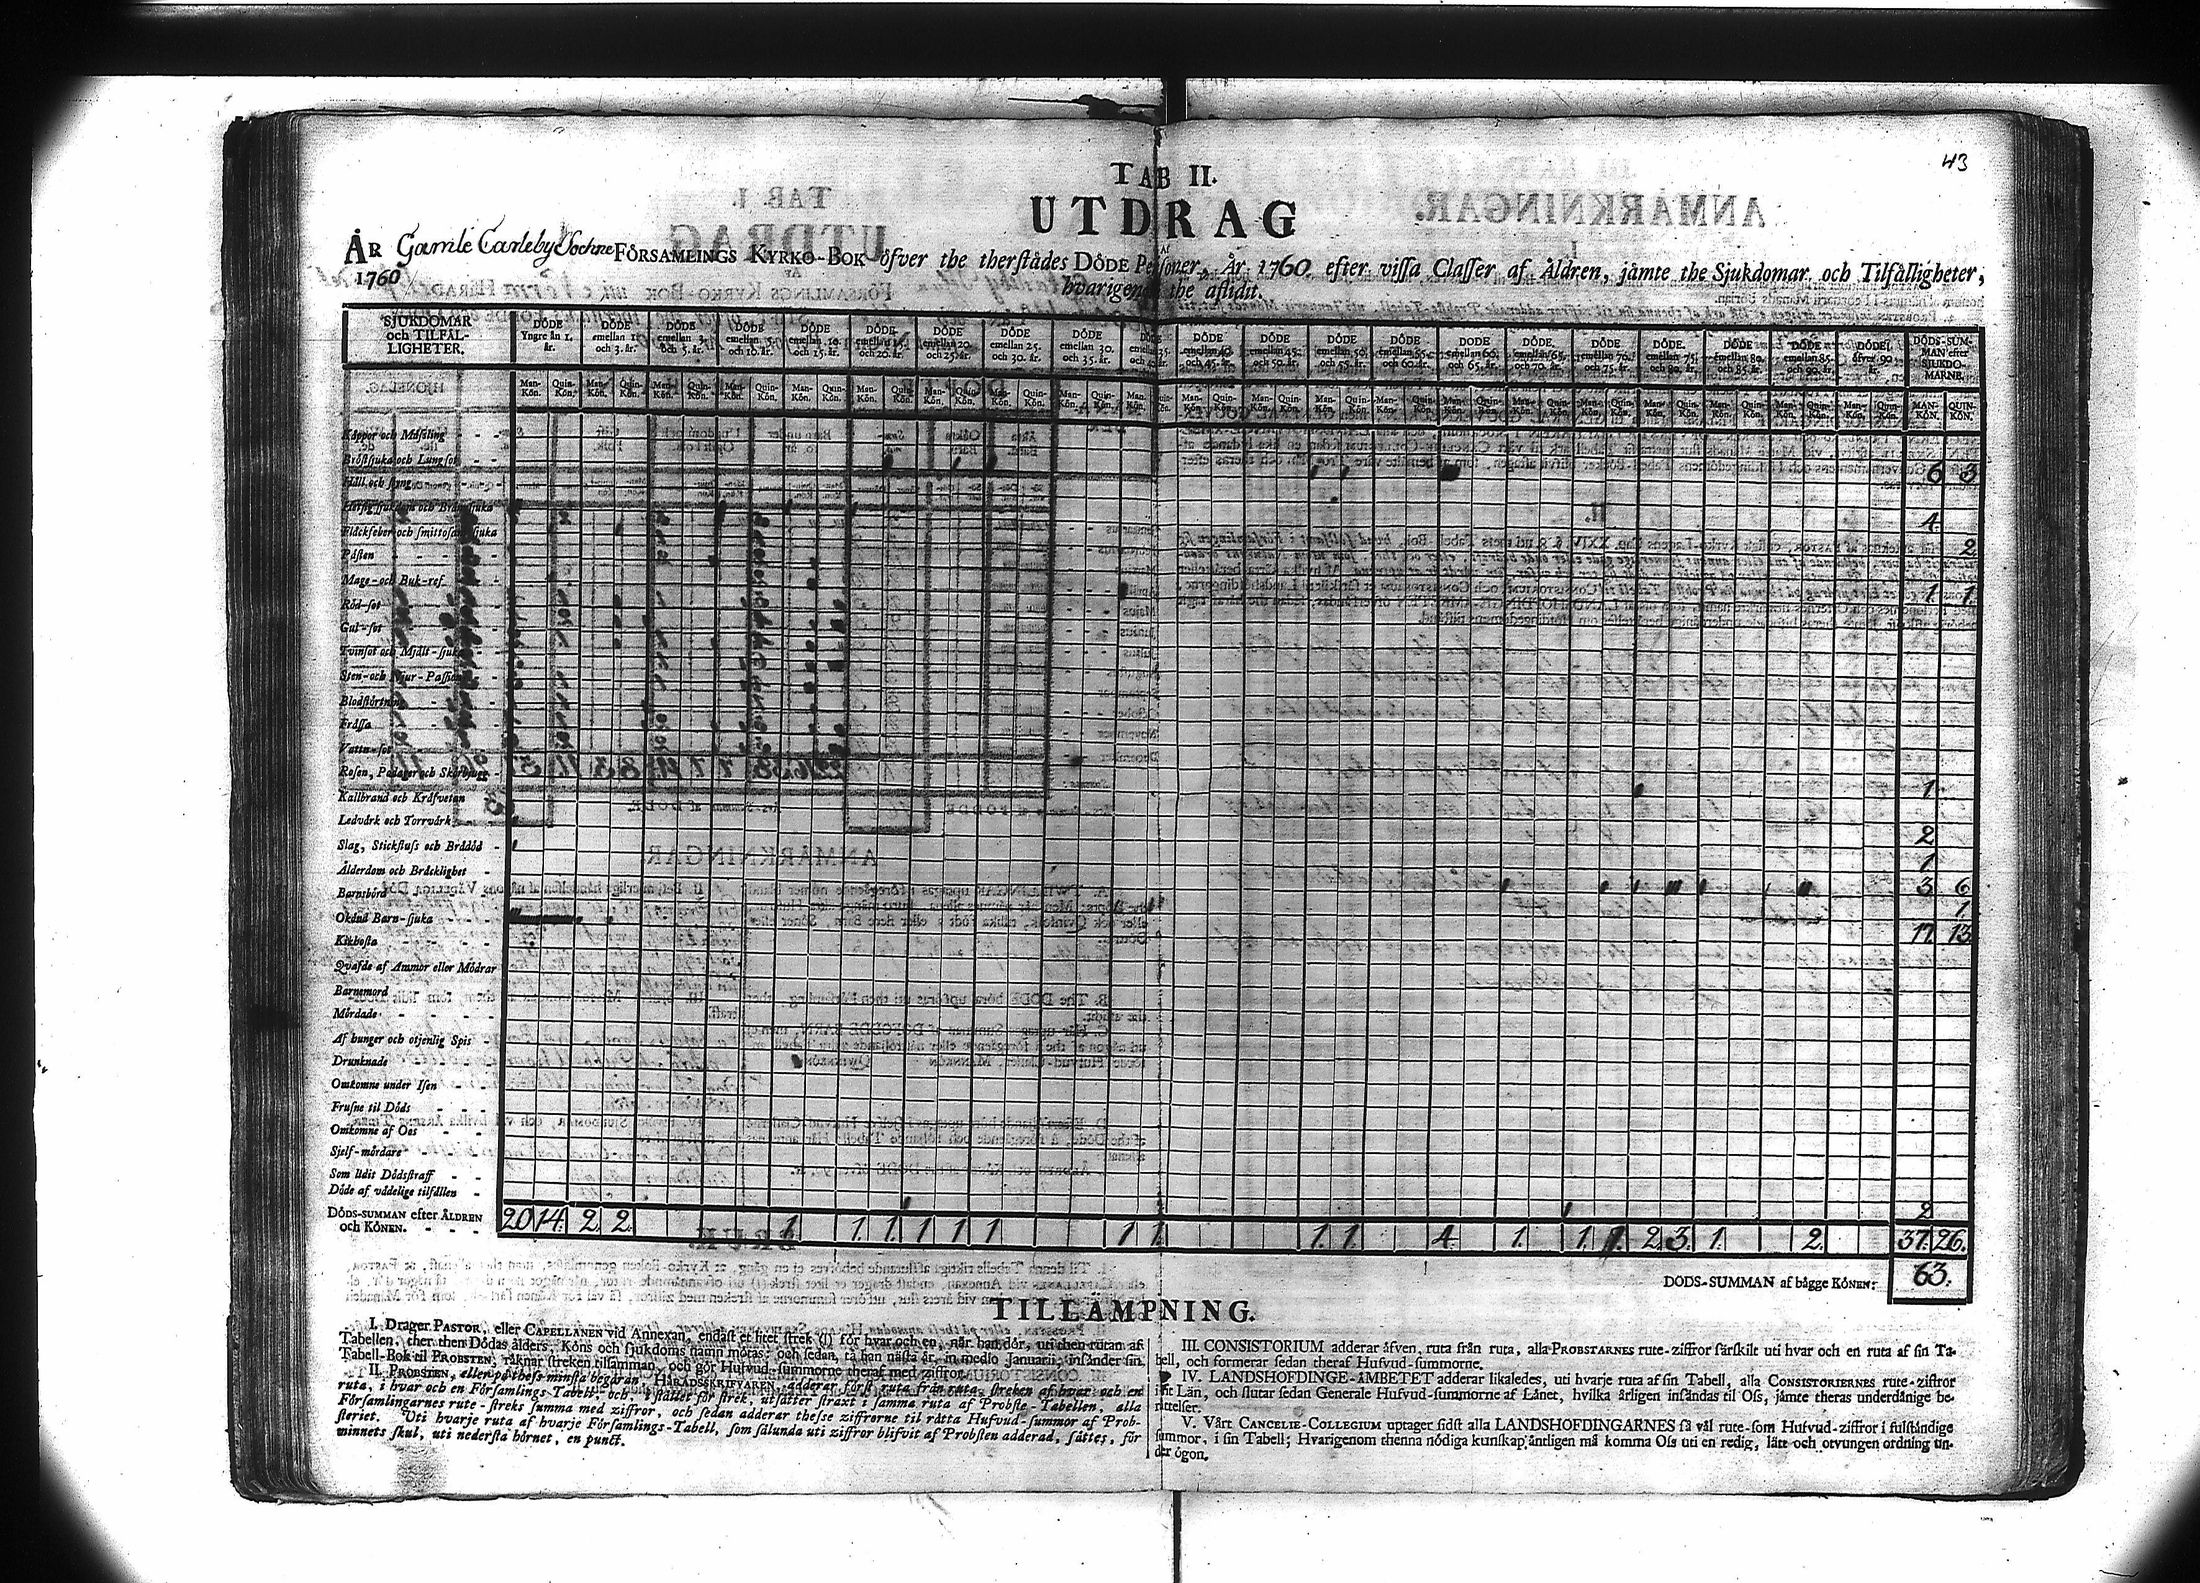 43
TAB II.
UTDRAG
AF
ÅR Gamle Carleby Sochne FÖRSAMLINGS KYRKO-BOK öfver the therstädes DÖDE Personer, År 1760. efter vissa Classer af Åldren, jämte the Sjukdomar och Tilfälligheter,
1760
hvarigenom the aflidit.
SJUKDOMAR och TILFÄLLIGHETER.
DÖDE Yngre än 1. år.
DÖDE emellan 1. och 3. år.
DÖDE emellan 3. och 5. år.
DÖDE emellan 5. och 10. år.
DÖDE emellan 10. och 15. år.
DÖDE och 20. år.
DÖDE emellan 20. och 25. år.
DÖDE emellan 25. och 30. år.
DÖDE emellan 30. och 35. år.
DÖDE emellan 40. och 45. år.
DÖDE emellan 45. och 50. år.
DÖDE emellan 50. och 55. år.
DÖDE emellan 55. och 60. år.
DÖDE emellan 60. och 65. år.
DÖDE. emellan 65. och 70. år.
DÖDE emellan 70. och 75. år.
DÖDE. emellan 75. och 80. år.
DÖDE emellan 80. och 85. år.
DÖDE emellan 85. och 90. år.
DÖDE öfver 90. år.
DÖDS-SUMMAN efter SJUKDOMARNE.
Man-Kön. Quin-Kön. Man-Kön. Quin-Kön. Man-Kön. Quin-Kön. Man-Kön. Quin-Kön. Man-Kön. Quin-Kön. Man-Kön. Quin-Kön. Man-Kön. Quin-Kön. Man-Kön. Quin-Kön.
MAN-KÖN. QUIN-KÖN.
Koppor och Mässling
Bröstsjuka och Lungsot 6 3
Håll och styng
Hetsig sjukdom och Brännsjuka 4.
Fläckfeber och smittosam sjuka 2
Pästen
Mage- och Buk-ref 1. 1.
Röd-sot
Gul-sot
Tvinsot och Mjält-sjuka
Sten- och Njur-Passion
Blodstörtning
Frässa
Vattu-sot
Rosen, Podager och Skörbjugg 1.
Kallbrand och Kräfvetan
Ledvärk och Torrvärk 2
Slag, Stickfluss och Brådöd 1.
Ålderdom och Bräcklighet 3. 6
Barnsbörd 1.
Okänd Barn-sjuka 17. 13.
Kikhosta
Qväfde af Ammor eller Mödrar
Barnemord
Mördade
Af hunger och otjenlig Spis
Drunknade
Omkomne under Isen
Frusne til Döds
Omkomne af Oos
Sjelf-mördare
Som lidit Dödsstraff
Döde af vådelige tilfällen 2
DÖDS-SUMMAN efter ÅLDREN och KÖNEN. 20 14. 2. 2. 1 1. 1. 1 1 1 1 1 1. 1. 4. 1. 1. 1. 2. 3. 1. 2. 37. 26.
DÖDS-SUMMAN af bägge KÖNEN: 63.
TILLÄMPNING.
I. Drager PASTOR, eller CAPELLANEN vid Annexan, endast et litet strek (|) för hvar och en, när han dör, uti then rutan af
Tabellen, ther then Dödas ålders, Köns och sjukdoms namn mötas: och sedan, tå han nästa år, in medio Januarii, insänder sin
Tabell-Bok til PROBSTEN, räknar streken tillsamman, och gör Hufvud-summorne theraf med ziffror.
II. PROBSTEN, eller på thess minsta begäran, HÄRADSKRIFVAREN, adderar först, ruta från ruta, streken af hvar och en
ruta, i hvar och en Församlings-Tabell, och, i stället för strek, utsätter straxt i samma ruta af Probste-Tabellen, alla
Församlingarnes rute-streks summa med ziffror, och sedan adderar thesse ziffrorne til rätta Hufvud-summor af Prob-
steriet. Uti hvarje ruta af hvarje Församlings-Tabell, som sålunda uti ziffror blifvit af Probsten adderad, sättes, för
minnets skul, uti nedersta hörnet, en punct.
III. CONSISTORIUM adderar äfven, ruta från ruta, alla PROBSTARNES rute-ziffror särskilt uti hvar och en ruta af sin Ta-
bell, och formerar sedan theraf Hufvud-summorne.
IV. LANDSHÖFDINGE-ÄMBETET adderar likaledes, uti hvarje ruta af sin Tabell, alla CONSISTORIERNES rute-ziffror
i sit Län, och slutar sedan Generale Hufvud-summorne af Länet, hvilka årligen insändas til Oss, jämte theras underdånige be-
rättelser.
V. Vårt CANCELIE-COLLEGIUM uptager sidst alla LANDSHÖFDINGARNES så väl rute-som Hufvud-ziffror i fulständige
summor, i sin Tabell; Hvarigenom thenna nödiga kunskap äntligen må komma Oss uti en redig, lätt och otvungen ordning un-
der ögon.